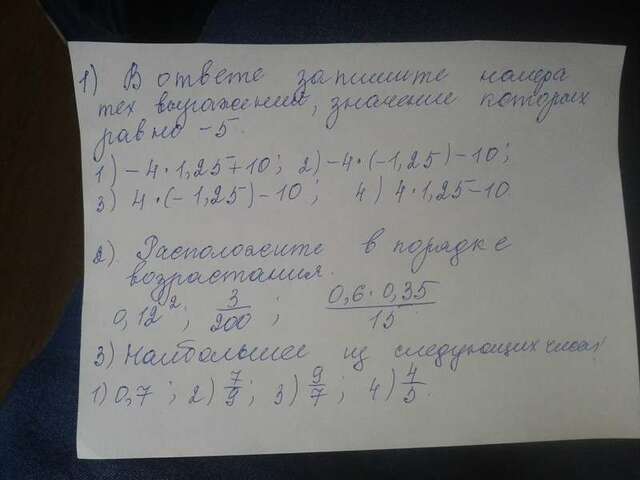 1) В ответе запишите номера
тех выражений, значение которых
равно -5.
1) -4·1,25+10; 2) -4·(-1,25)-10;
3) 4·(-1,25)-10; 4) 4·1,25-10.
2) Расположите в порядке
возрастания.
0,12²; 3/200; 0,6·0,35/15
3) Наибольшее из следующих чисел!
1) 0,7; 2) 7/9; 3) 9/7; 4) 4/5.